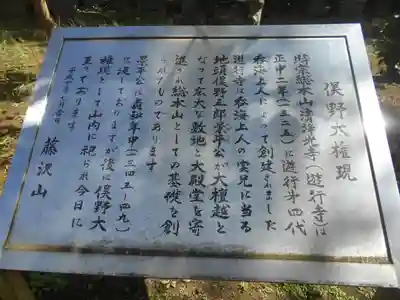 俣野大権現
時宗総本山清浄光寺（遊行寺）は
正中二年（一三二五）に遊行第四代
呑海上人によって創建されました
遊行寺は呑海上人の実兄に当る
地頭俣野五郎景平公が大檀越と
なって広大な敷地と大殿堂を寄
進され総本山としての基礎を創
られたものであります
景平公は貞和年中（一三四五-四九）
に没しておりますが後に俣野大
権現として山内に祀られ今日に
至っております
藤沢山